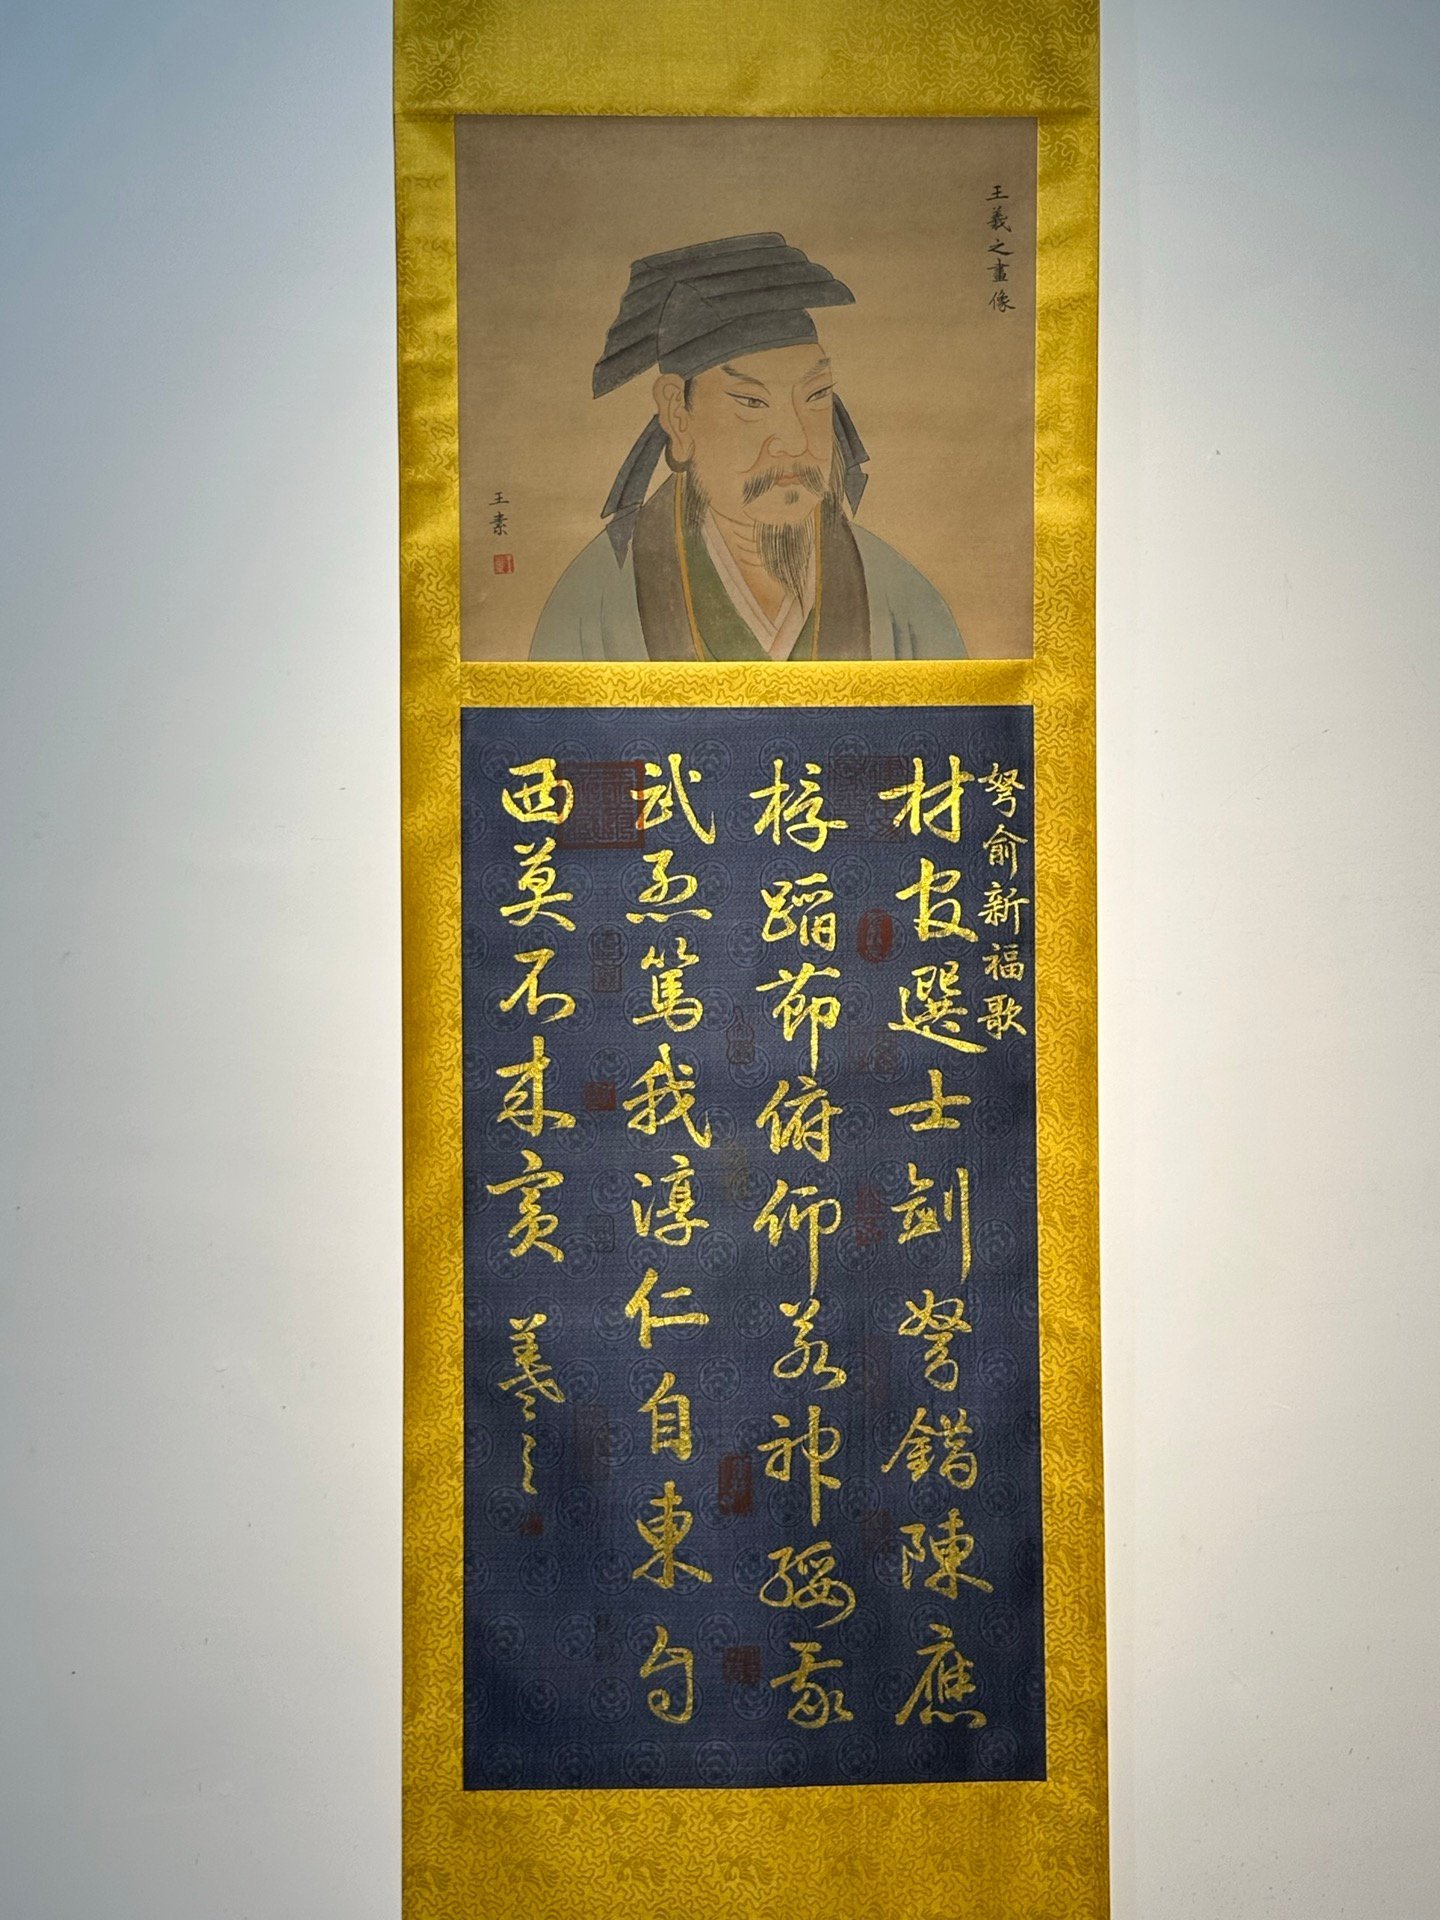 王羲之畫像
王素
弩俞新福歌
材官選士劍弩錯陳應
桴蹈節俯仰若神綏我
武烈篤我淳仁自東自
西莫不来賓
羲之